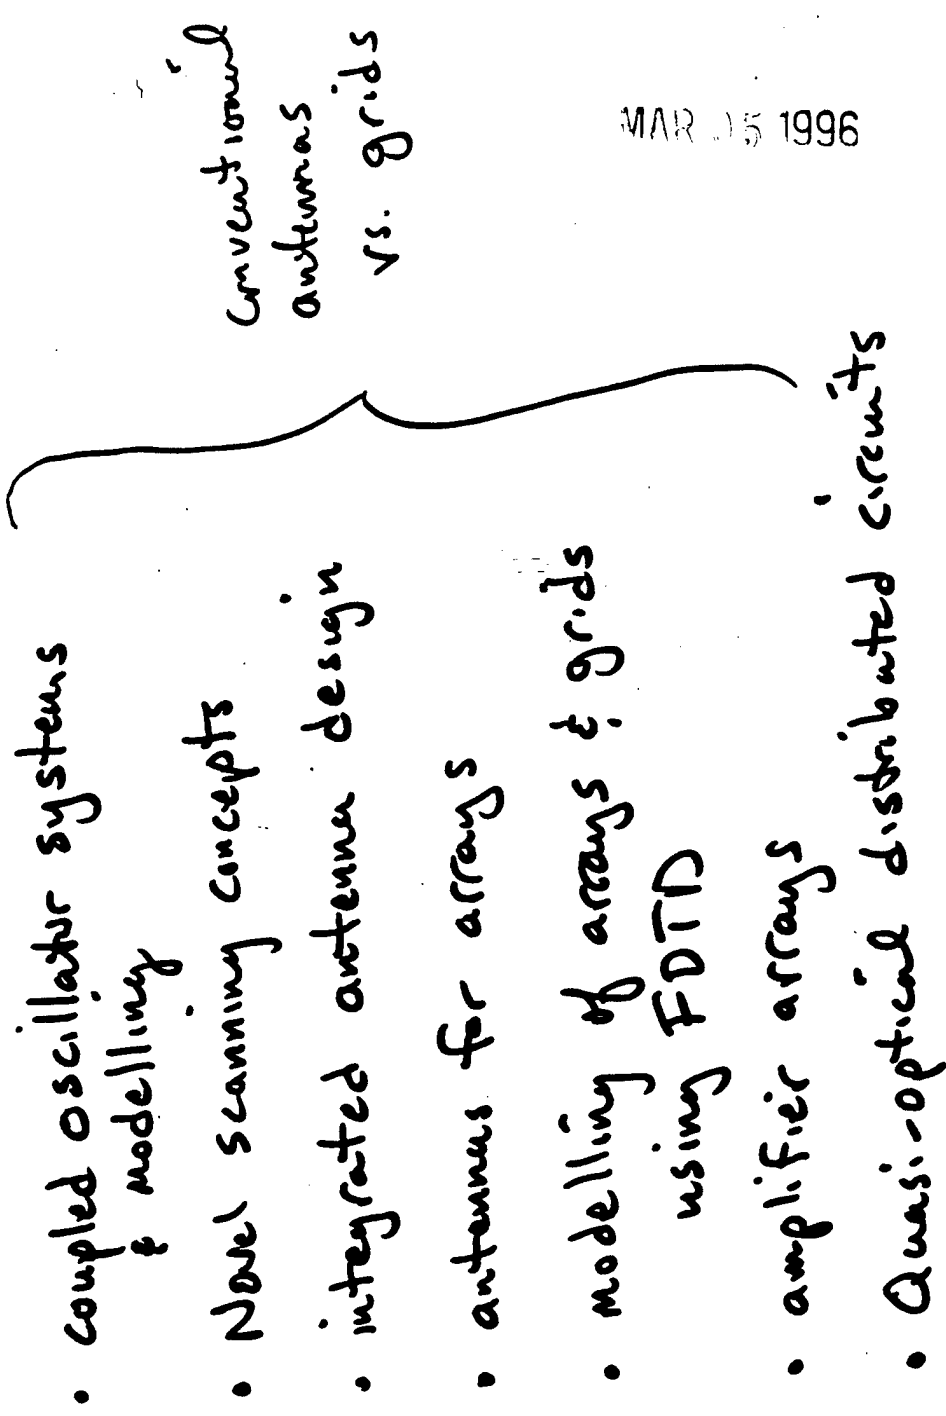 • coupled oscillator systems
& modelling
• Novel scanning concepts
• integrated antenna design
• antennas for arrays
• modelling of arrays & grids
using FDTD
• amplifier arrays
• Quasi-optical distributed circuits
conventional
antennas
vs. grids
MAR 15 1996